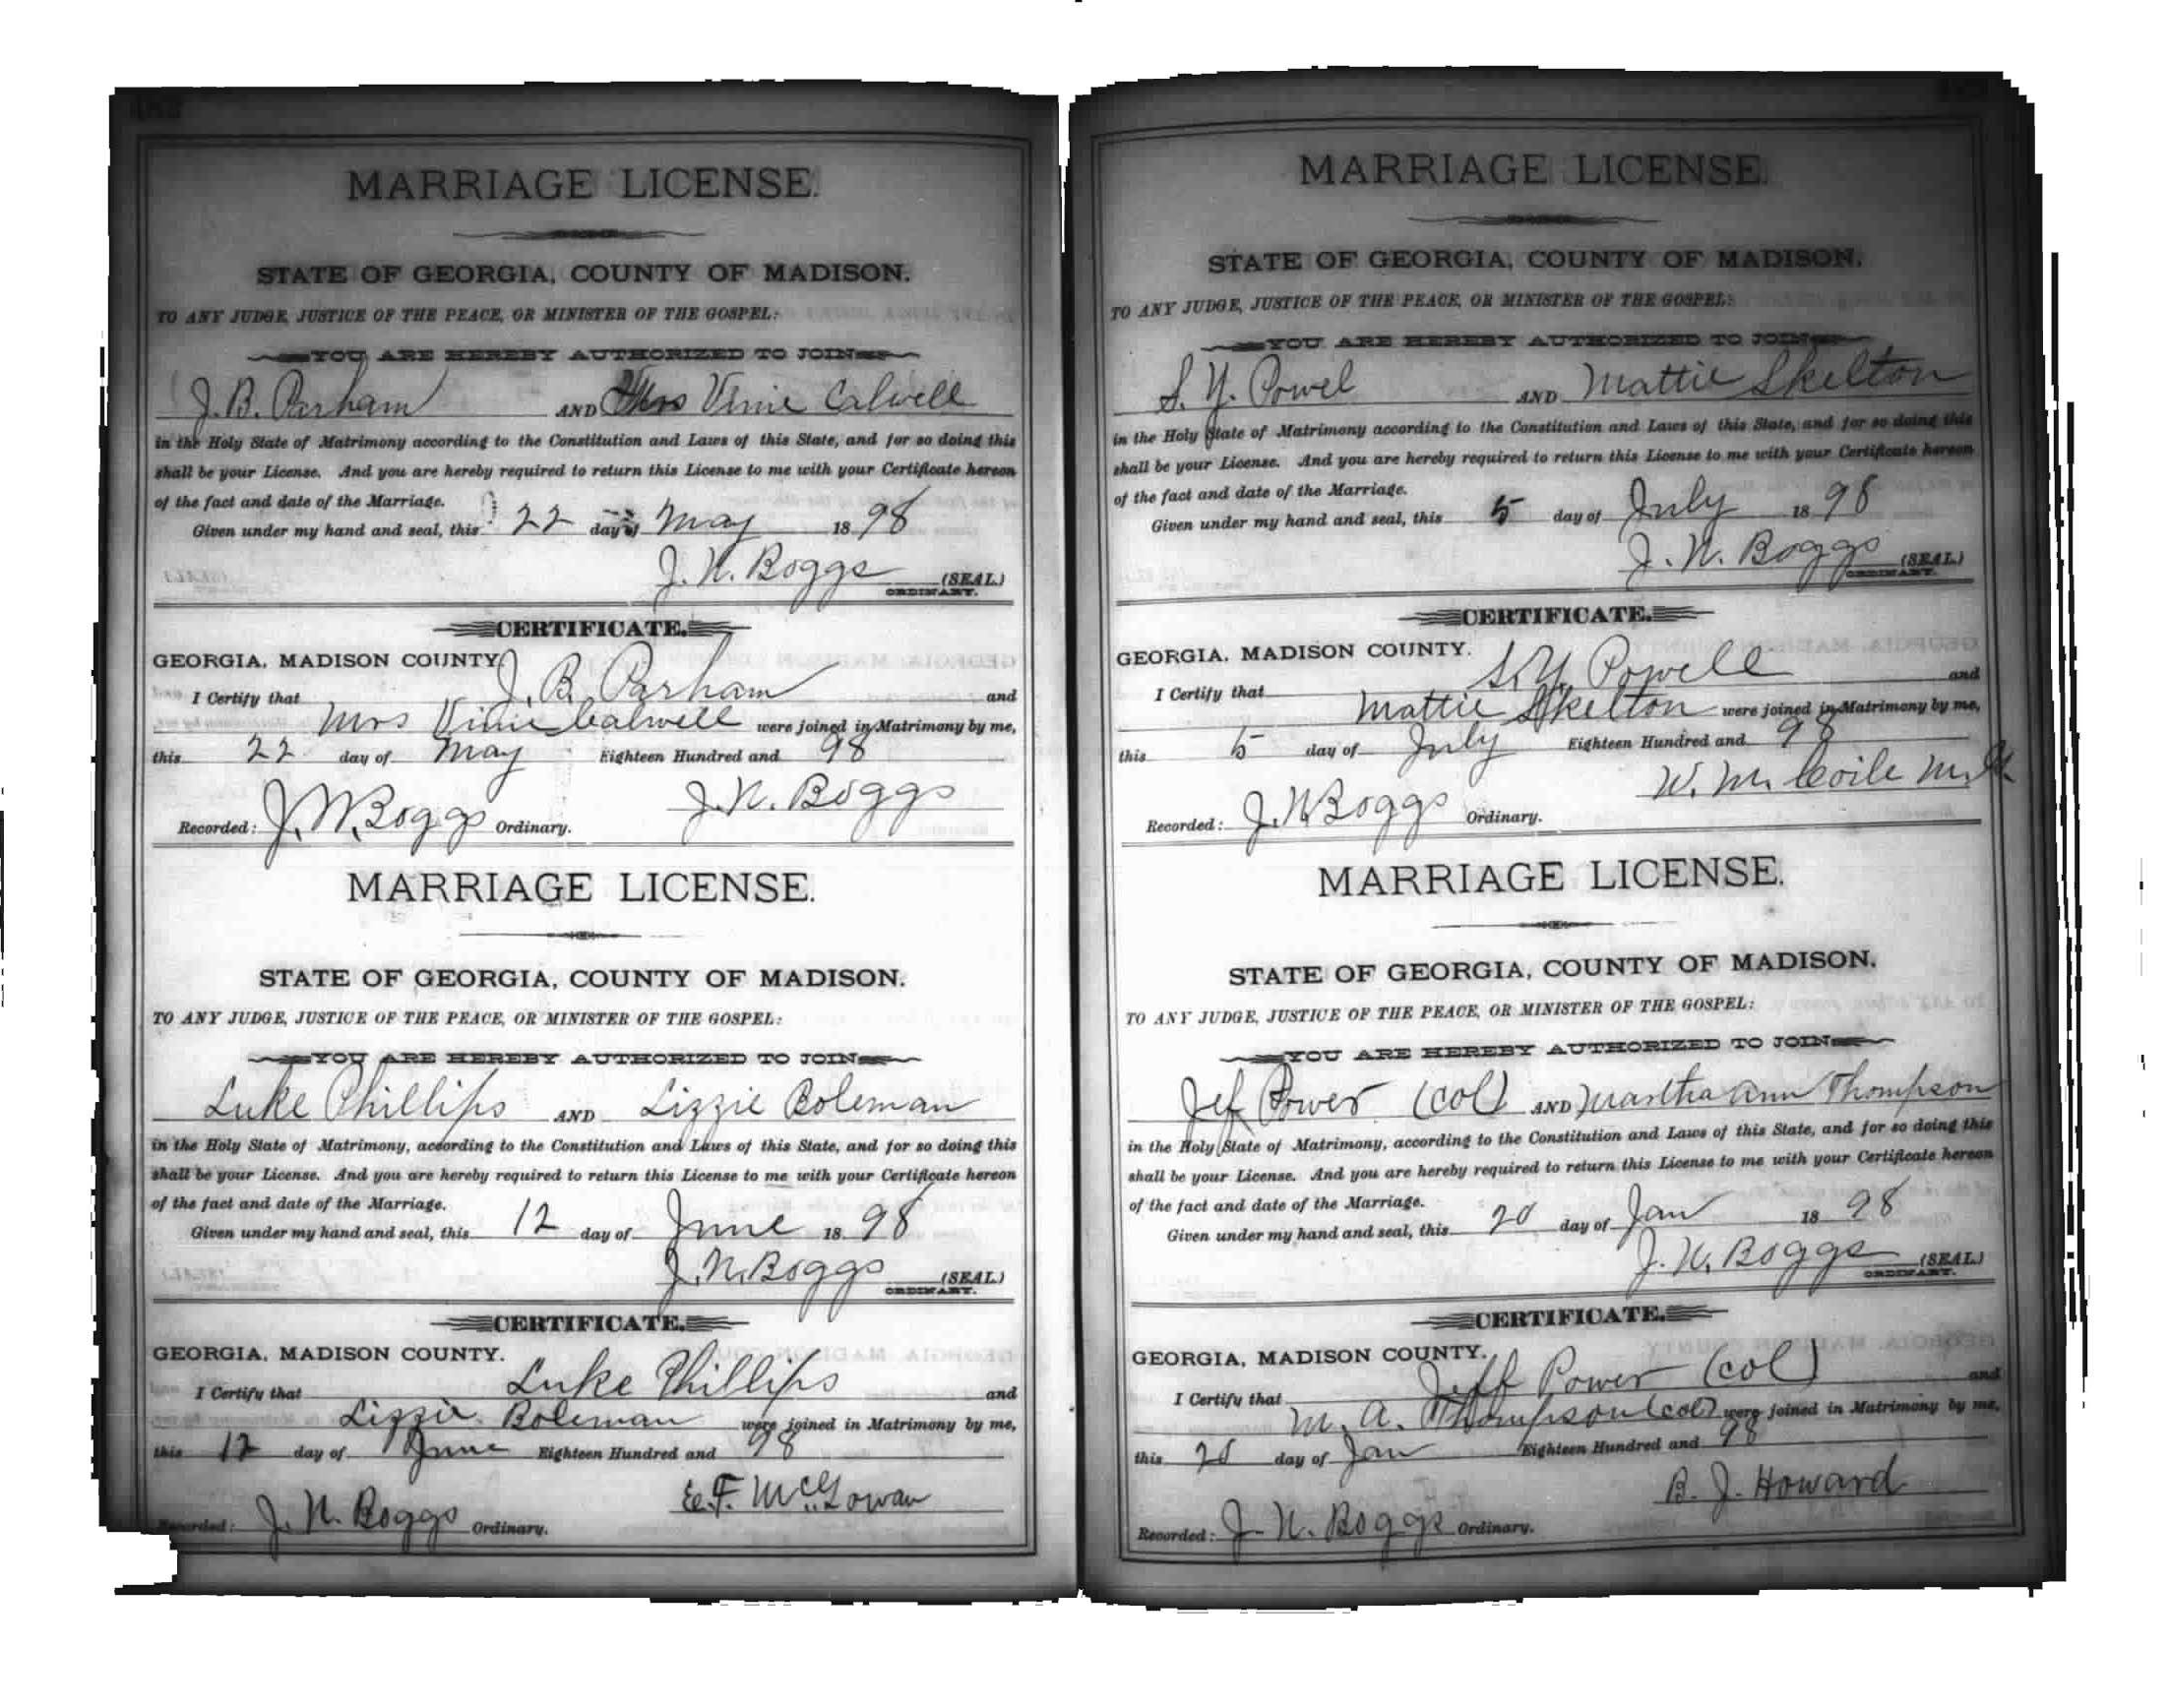 MARRIAGE LICENSE.
STATE OF GEORGIA, COUNTY OF MADISON.
TO ANY JUDGE, JUSTICE OF THE PEACE, OR MINISTER OF THE GOSPEL:
YOU ARE HEREBY AUTHORIZED TO JOIN
J. B. Parham AND Mrs Vinie Calwell
in the Holy State of Matrimony according to the Constitution and Laws of this State, and for so doing this
shall be your License. And you are hereby required to return this License to me with your Certificate hereon
of the fact and date of the Marriage.
Given under my hand and seal, this 22 day of May 1898
J. N. Boggs (SEAL)
ORDINARY.
CERTIFICATE.
GEORGIA, MADISON COUNTY.
I Certify that J. B. Parham and
Mrs Vinie Calwell were joined in Matrimony by me,
this 22 day of May Eighteen Hundred and 98
J. N. Boggs
Recorded: J. N. Boggs Ordinary.
MARRIAGE LICENSE.
STATE OF GEORGIA, COUNTY OF MADISON.
TO ANY JUDGE, JUSTICE OF THE PEACE, OR MINISTER OF THE GOSPEL:
YOU ARE HEREBY AUTHORIZED TO JOIN
Luke Phillips AND Lizzie Boleman
in the Holy State of Matrimony, according to the Constitution and Laws of this State, and for so doing this
shall be your License. And you are hereby required to return this License to me with your Certificate hereon
of the fact and date of the Marriage.
Given under my hand and seal, this 12 day of June 1898
J. N. Boggs (SEAL)
ORDINARY.
CERTIFICATE.
GEORGIA, MADISON COUNTY.
I Certify that Luke Phillips and
Lizzie Boleman were joined in Matrimony by me,
this 12 day of June Eighteen Hundred and 98
E. F. McGowan
Recorded: J. N. Boggs Ordinary.
MARRIAGE LICENSE.
STATE OF GEORGIA, COUNTY OF MADISON.
TO ANY JUDGE, JUSTICE OF THE PEACE, OR MINISTER OF THE GOSPEL:
YOU ARE HEREBY AUTHORIZED TO JOIN
S. Y. Powel AND Mattie Skelton
in the Holy State of Matrimony according to the Constitution and Laws of this State, and for so doing this
shall be your License. And you are hereby required to return this License to me with your Certificate hereon
of the fact and date of the Marriage.
Given under my hand and seal, this 5 day of July 1898
J. N. Boggs (SEAL)
ORDINARY.
CERTIFICATE.
GEORGIA, MADISON COUNTY.
I Certify that S. Y. Powell and
Mattie Skelton were joined in Matrimony by me,
this 5 day of July Eighteen Hundred and 98
W. M. Coile M. G.
Recorded: J. N. Boggs Ordinary.
MARRIAGE LICENSE.
STATE OF GEORGIA, COUNTY OF MADISON.
TO ANY JUDGE, JUSTICE OF THE PEACE, OR MINISTER OF THE GOSPEL:
YOU ARE HEREBY AUTHORIZED TO JOIN
Jef Power (Col) AND Martha Ann Thompson
in the Holy State of Matrimony, according to the Constitution and Laws of this State, and for so doing this
shall be your License. And you are hereby required to return this License to me with your Certificate hereon
of the fact and date of the Marriage.
Given under my hand and seal, this 20 day of Jan 1898
J. N. Boggs (SEAL)
ORDINARY.
CERTIFICATE.
GEORGIA, MADISON COUNTY.
I Certify that Jeff Power (Col) and
M. A. Thompson (col) were joined in Matrimony by me,
this 20 day of Jan Eighteen Hundred and 98
B. J. Howard
Recorded: J. N. Boggs Ordinary.